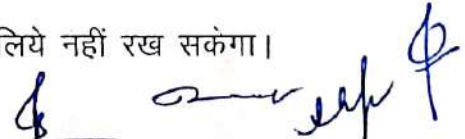 लिये नहीं रख सकेगा।